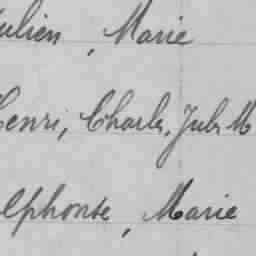 ulien, Marie
Henri, Charles, Jules M
lphonse, Marie